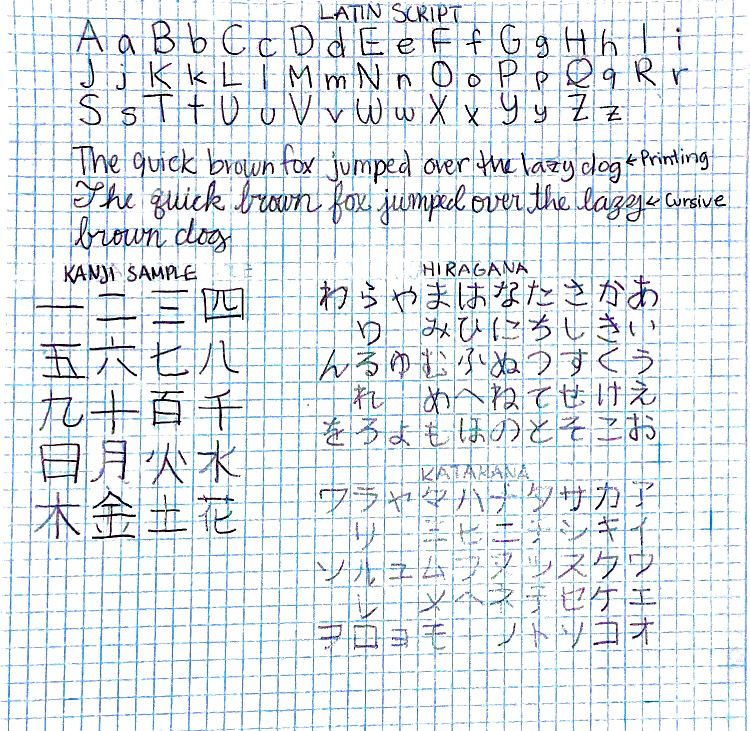 LATIN SCRIPT
A a B b C c D d E e F f G g H h I i
J j K k L l M m N n O o P p Q q R r
S s T t U u V v W w X x Y y Z z
The quick brown fox jumped over the lazy dog ← Printing
The quick brown fox jumped over the lazy ← Cursive
brown dog
KANJI SAMPLE
一 二 三 四
五 六 七 八
九 十 百 千
日 月 火 水
木 金 土 花
HIRAGANA
わ ら や ま は な た さ か あ
り み ひ に ち し き い
ん る ゆ む ふ ぬ つ す く う
れ め へ ね て せ け え
を ろ よ も ほ の と そ こ お
KATAKANA
ワ ラ ヤ マ ハ ナ タ サ カ ア
リ ミ ヒ ニ チ シ キ イ
ン ル ユ ム フ ヌ ツ ス ク ウ
レ メ ヘ ネ テ セ ケ エ
ヲ ロ ヨ モ ノ ト ソ コ オ